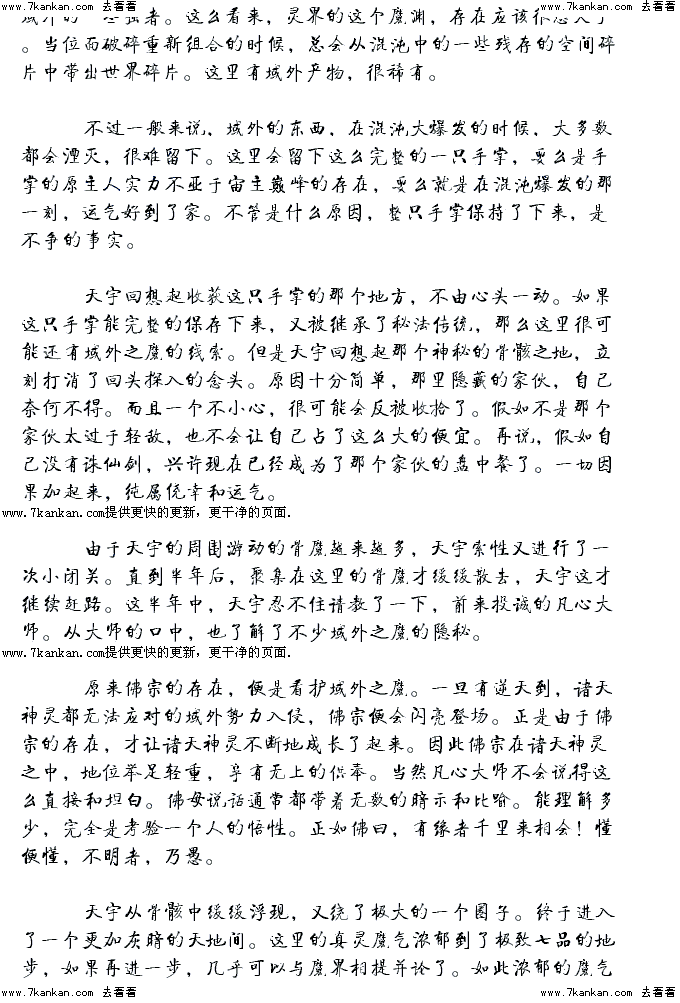 www.7kankan.com 去看看 www.7kankan.com 去看看 www.7kankan.com 去看看
。当位面破碎重新组合的时候，总会从混沌中的一些残存的空间碎
片中带出世界碎片。这里有域外产物，很稀有。
不过一般来说，域外的东西，在混沌大爆发的时候，大多数
都会湮灭，很难留下。这里会留下这么完整的一只手掌，要么是手
掌的原主人实力不亚于宙主巅峰的存在，要么就是在混沌爆发的那
一刻，运气好到了家。不管是什么原因，整只手掌保持了下来，是
不争的事实。
天宇回想起收获这只手掌的那个地方，不由心头一动。如果
这只手掌能完整的保存下来，又被继承了秘法传统，那么这里很可
能还有域外之魔的线索。但是天宇回想起那个神秘的骨骸之地，立
刻打消了回头探入的念头。原因十分简单，那里隐藏的家伙，自己
奈何不得。而且一个不小心，很可能会反被收拾了。假如不是那个
家伙太过于轻敌，也不会让自己占了这么大的便宜。再说，假如自
己没有诛仙剑，兴许现在已经成为了那个家伙的盘中餐了。一切因
果加起来，纯属侥幸和运气。
www.7kankan.com提供更快的更新，更干净的页面.
由于天宇的周围游动的骨魔越来越多，天宇索性又进行了一
次小闭关。直到半年后，聚集在这里的骨魔才缓缓散去，天宇这才
继续赶路。这半年中，天宇忍不住请教了一下，前来投诚的凡心大
师。从大师的口中，也了解了不少域外之魔的隐秘。
www.7kankan.com提供更快的更新，更干净的页面.
原来佛宗的存在，便是看护域外之魔。一旦有逆天到，诸天
神灵都无法应对的域外势力入侵，佛宗便会闪亮登场。正是由于佛
宗的存在，才让诸天神灵不断地成长了起来。因此佛宗在诸天神灵
之中，地位举足轻重，享有无上的供奉。当然凡心大师不会说得这
么直接和坦白。佛母说话通常都带着无数的暗示和比喻。能理解多
少，完全是考验一个人的悟性。正如佛曰，有缘者千里来相会！懂
便懂，不明者，乃愚。
天宇从骨骸中缓缓浮现，又绕了极大的一个圈子。终于进入
了一个更加灰暗的天地间。这里的真灵魔气浓郁到了极致七品的地
步，如果再进一步，几乎可以与魔界相提并论了。如此浓郁的魔气
www.7kankan.com 去看看 www.7kankan.com 去看看 www.7kankan.com 去看看